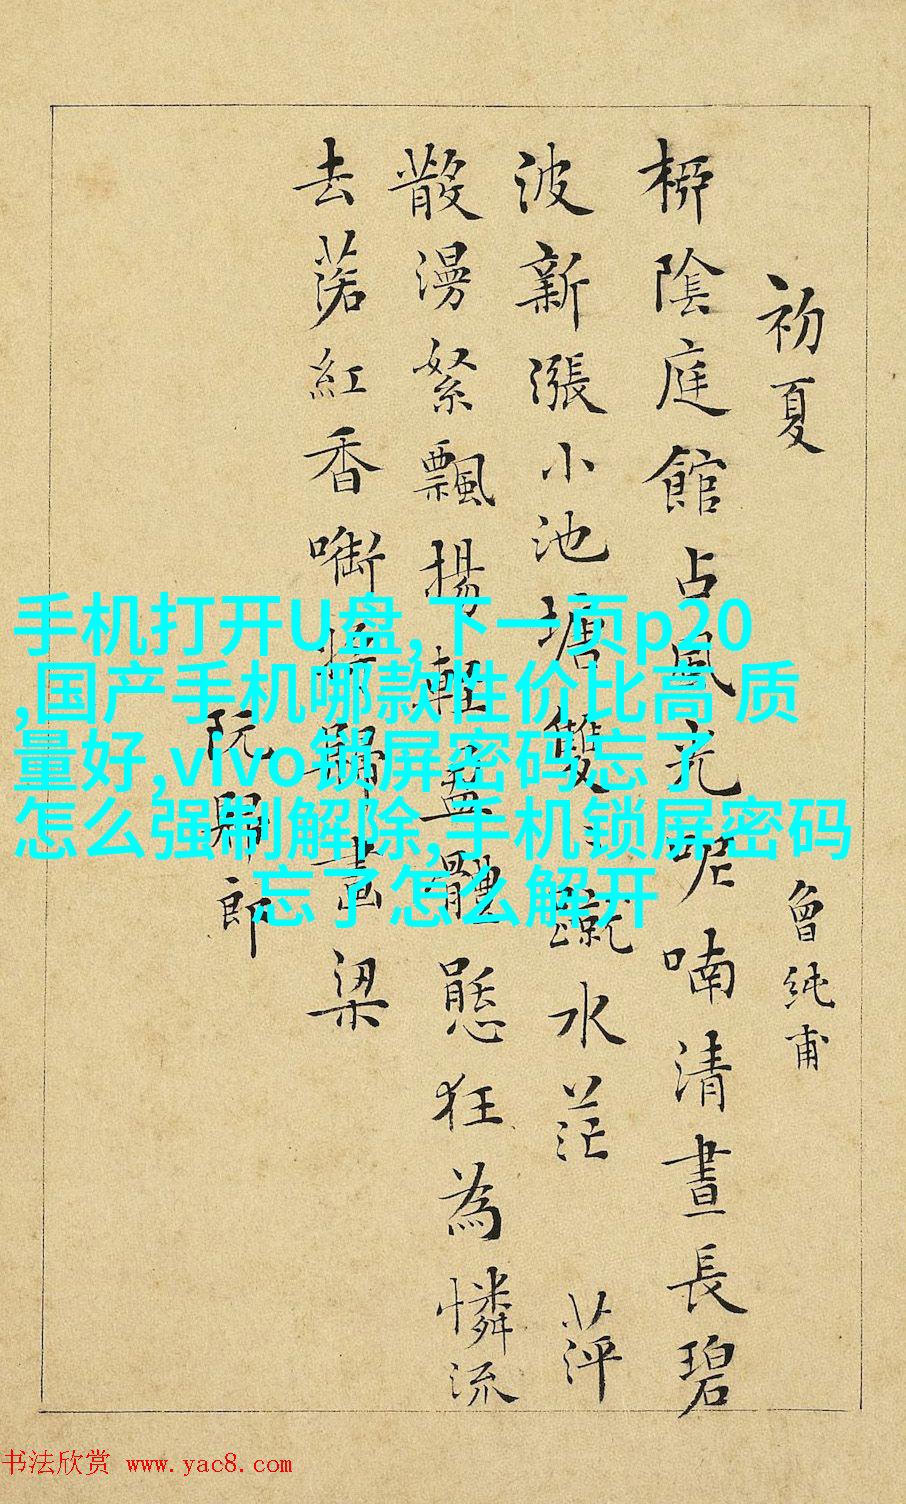 初夏 曾純甫
桺陰庭館占風光呢喃清晝長碧
波新漲小池塘雙〻蹴水茫 萍
散漫絮飄揚輕盈體態狂為憐流
去落紅香啣將歸畫梁
阮歸郎
手机打开U盘,下一页p20
,国产手机哪款性价比高 质
量好,vivo锁屏密码忘了
怎么强制解除,手机锁屏密码
忘了怎么解开
书法欣赏 www.yac8.com